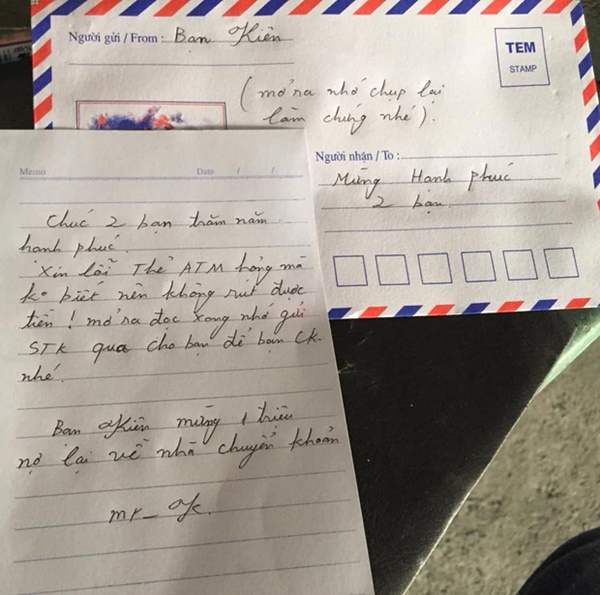 Người gửi / From : Bạn Kiên
TEM
STAMP
(mở ra nhớ chụp lại
làm chứng nhé).
Người nhận / To :
Mừng Hạnh phúc
2 bạn
Memo Date / /
Chúc 2 bạn trăm năm
hạnh phúc.
Xin lỗi Thẻ ATM hỏng mà
ko biết nên không rút được
tiền ! mở ra đọc xong nhớ gửi
STK qua cho bạn để bạn CK.
nhé.
Bạn Kiên mừng 1 triệu
nợ lại về nhà chuyển khoản
mr_ K.